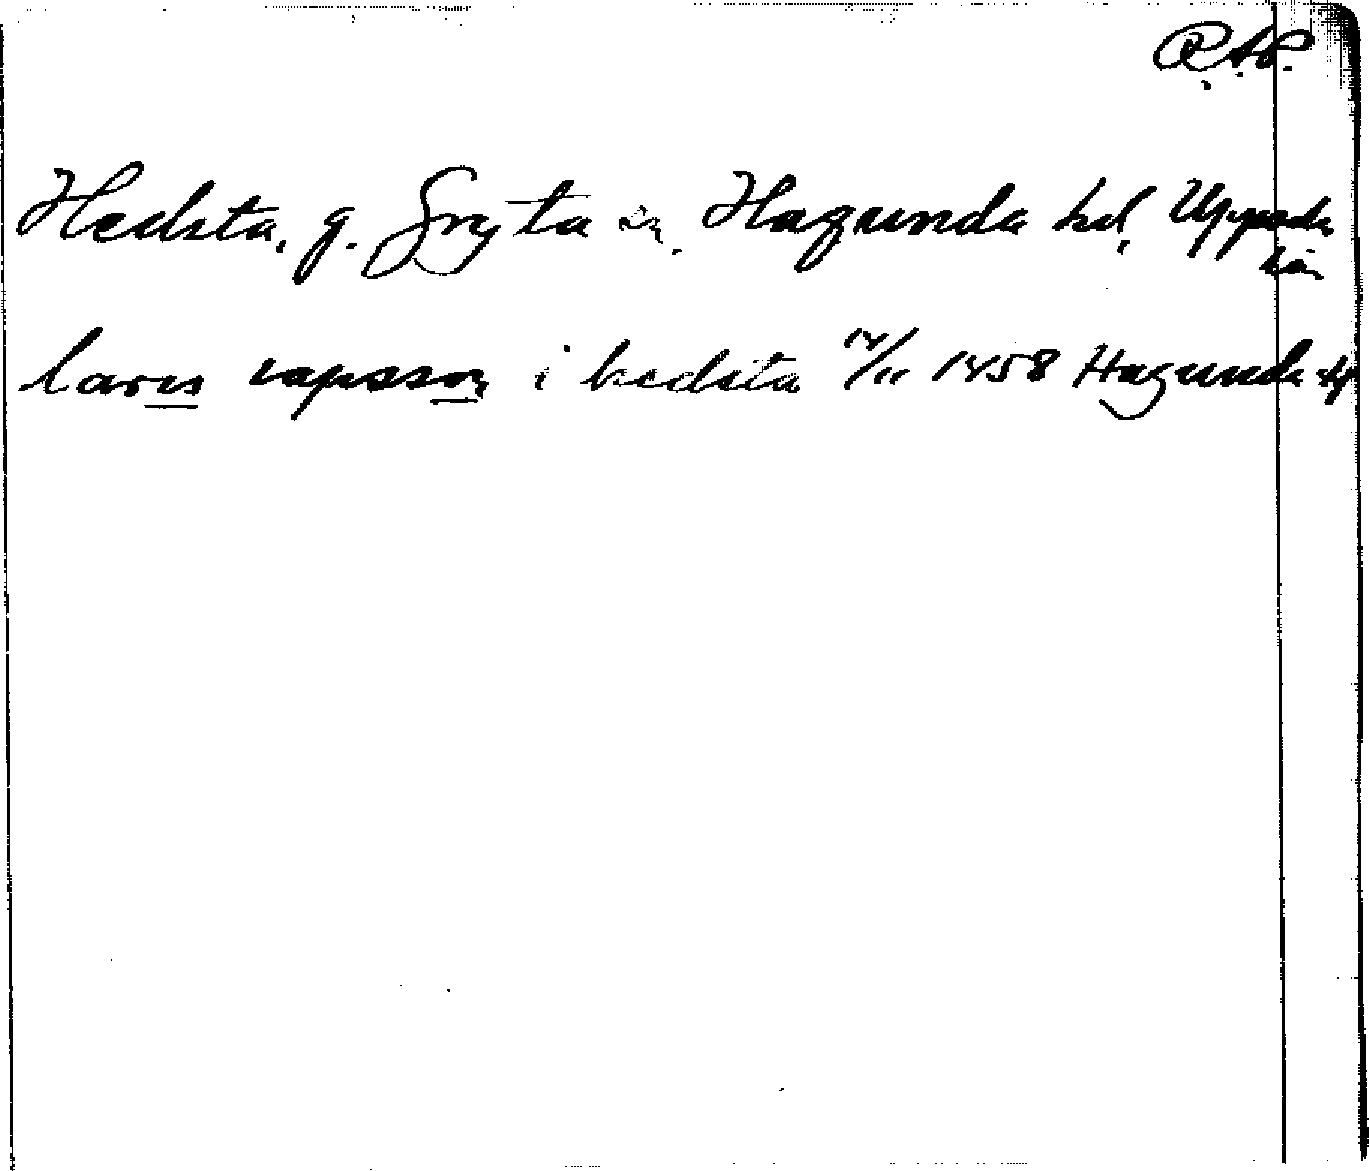 R.A.P.
Hedsta, g. Gryta sn. Hagunda hd, Uppsala
län
laris vapsson i hedsta 14/11 1458 Hagunda